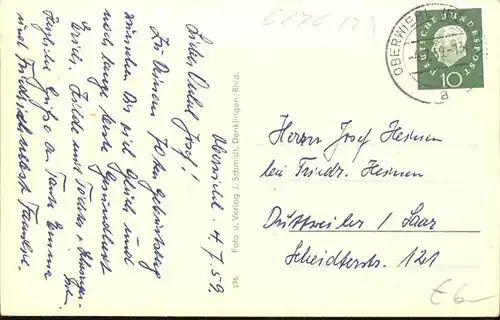 Oberwiehl. 4.7.59.
Lieber Onkel Josef!
Zu Deinem 75ten Geburtstag
wünschen Dir viel Glück und
noch lange beste Gesundheit
Erich, Friede und Töchter + Schwieger-
Herzliche Grüße an Tante Emma
und Friedrich nebst Familie.
Foto u. Verlag J. Schmidt, Denklingen, Rhld.
596
OBERWIEHL
a
DEUTSCHE BUNDESPOST
10
Herrn Josef Heinen
bei Friedr. Heinen
Duttweiler / Saar
Scheidterstr. 121